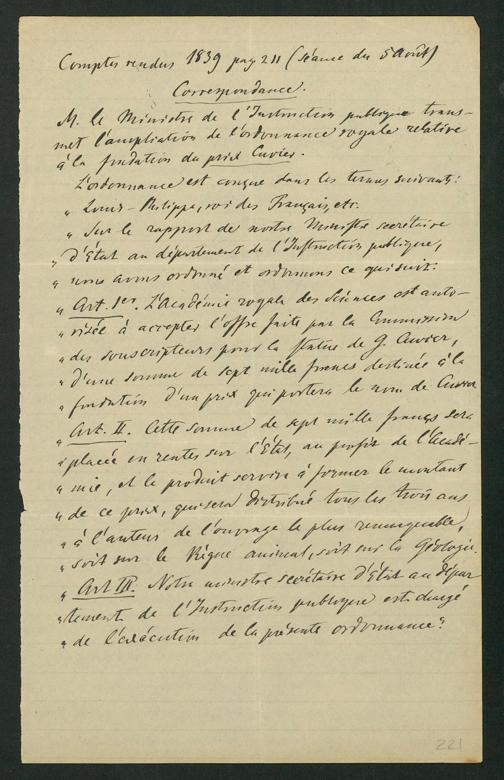 Comptes rendus 1839 pag 211 (séance du 5 Août)
Correspondance.
M. le Ministre de l'Instruction publique trans-
met l'ampliation de l'ordonnance royale relative
à la fondation du prix Cuvier.
L'ordonnance est conçue dans les termes suivants:
" Louis-Philippe, roi des Français, etc.
" Sur le rapport de notre Ministre secrétaire
" d'État au département de l'Instruction publique,
" nous avons ordonné et ordonnons ce qui suit:
" Art. 1er. L'Académie royale des Sciences est auto-
" risée à accepter l'offre faite par la Commission
" des souscripteurs pour la statue de G. Cuvier,
" d'une somme de sept mille francs destinée à la
" fondation d'un prix qui portera le nom de Cuvier
" Art. II. Cette somme de sept mille francs sera
" placée en rentes sur l'État, au profit de l'Acadé-
" mie, et le produit servira à former le montant
" de ce prix, qui sera distribué tous les trois ans
" à l'auteur de l'ouvrage le plus remarquable,
" soit sur le Règne animal, soit sur la Géologie.
" Art III. Notre ministre secrétaire d'État au dépar
" tement de l'Instruction publique est chargé
" de l'exécution de la présente ordonnance."
221